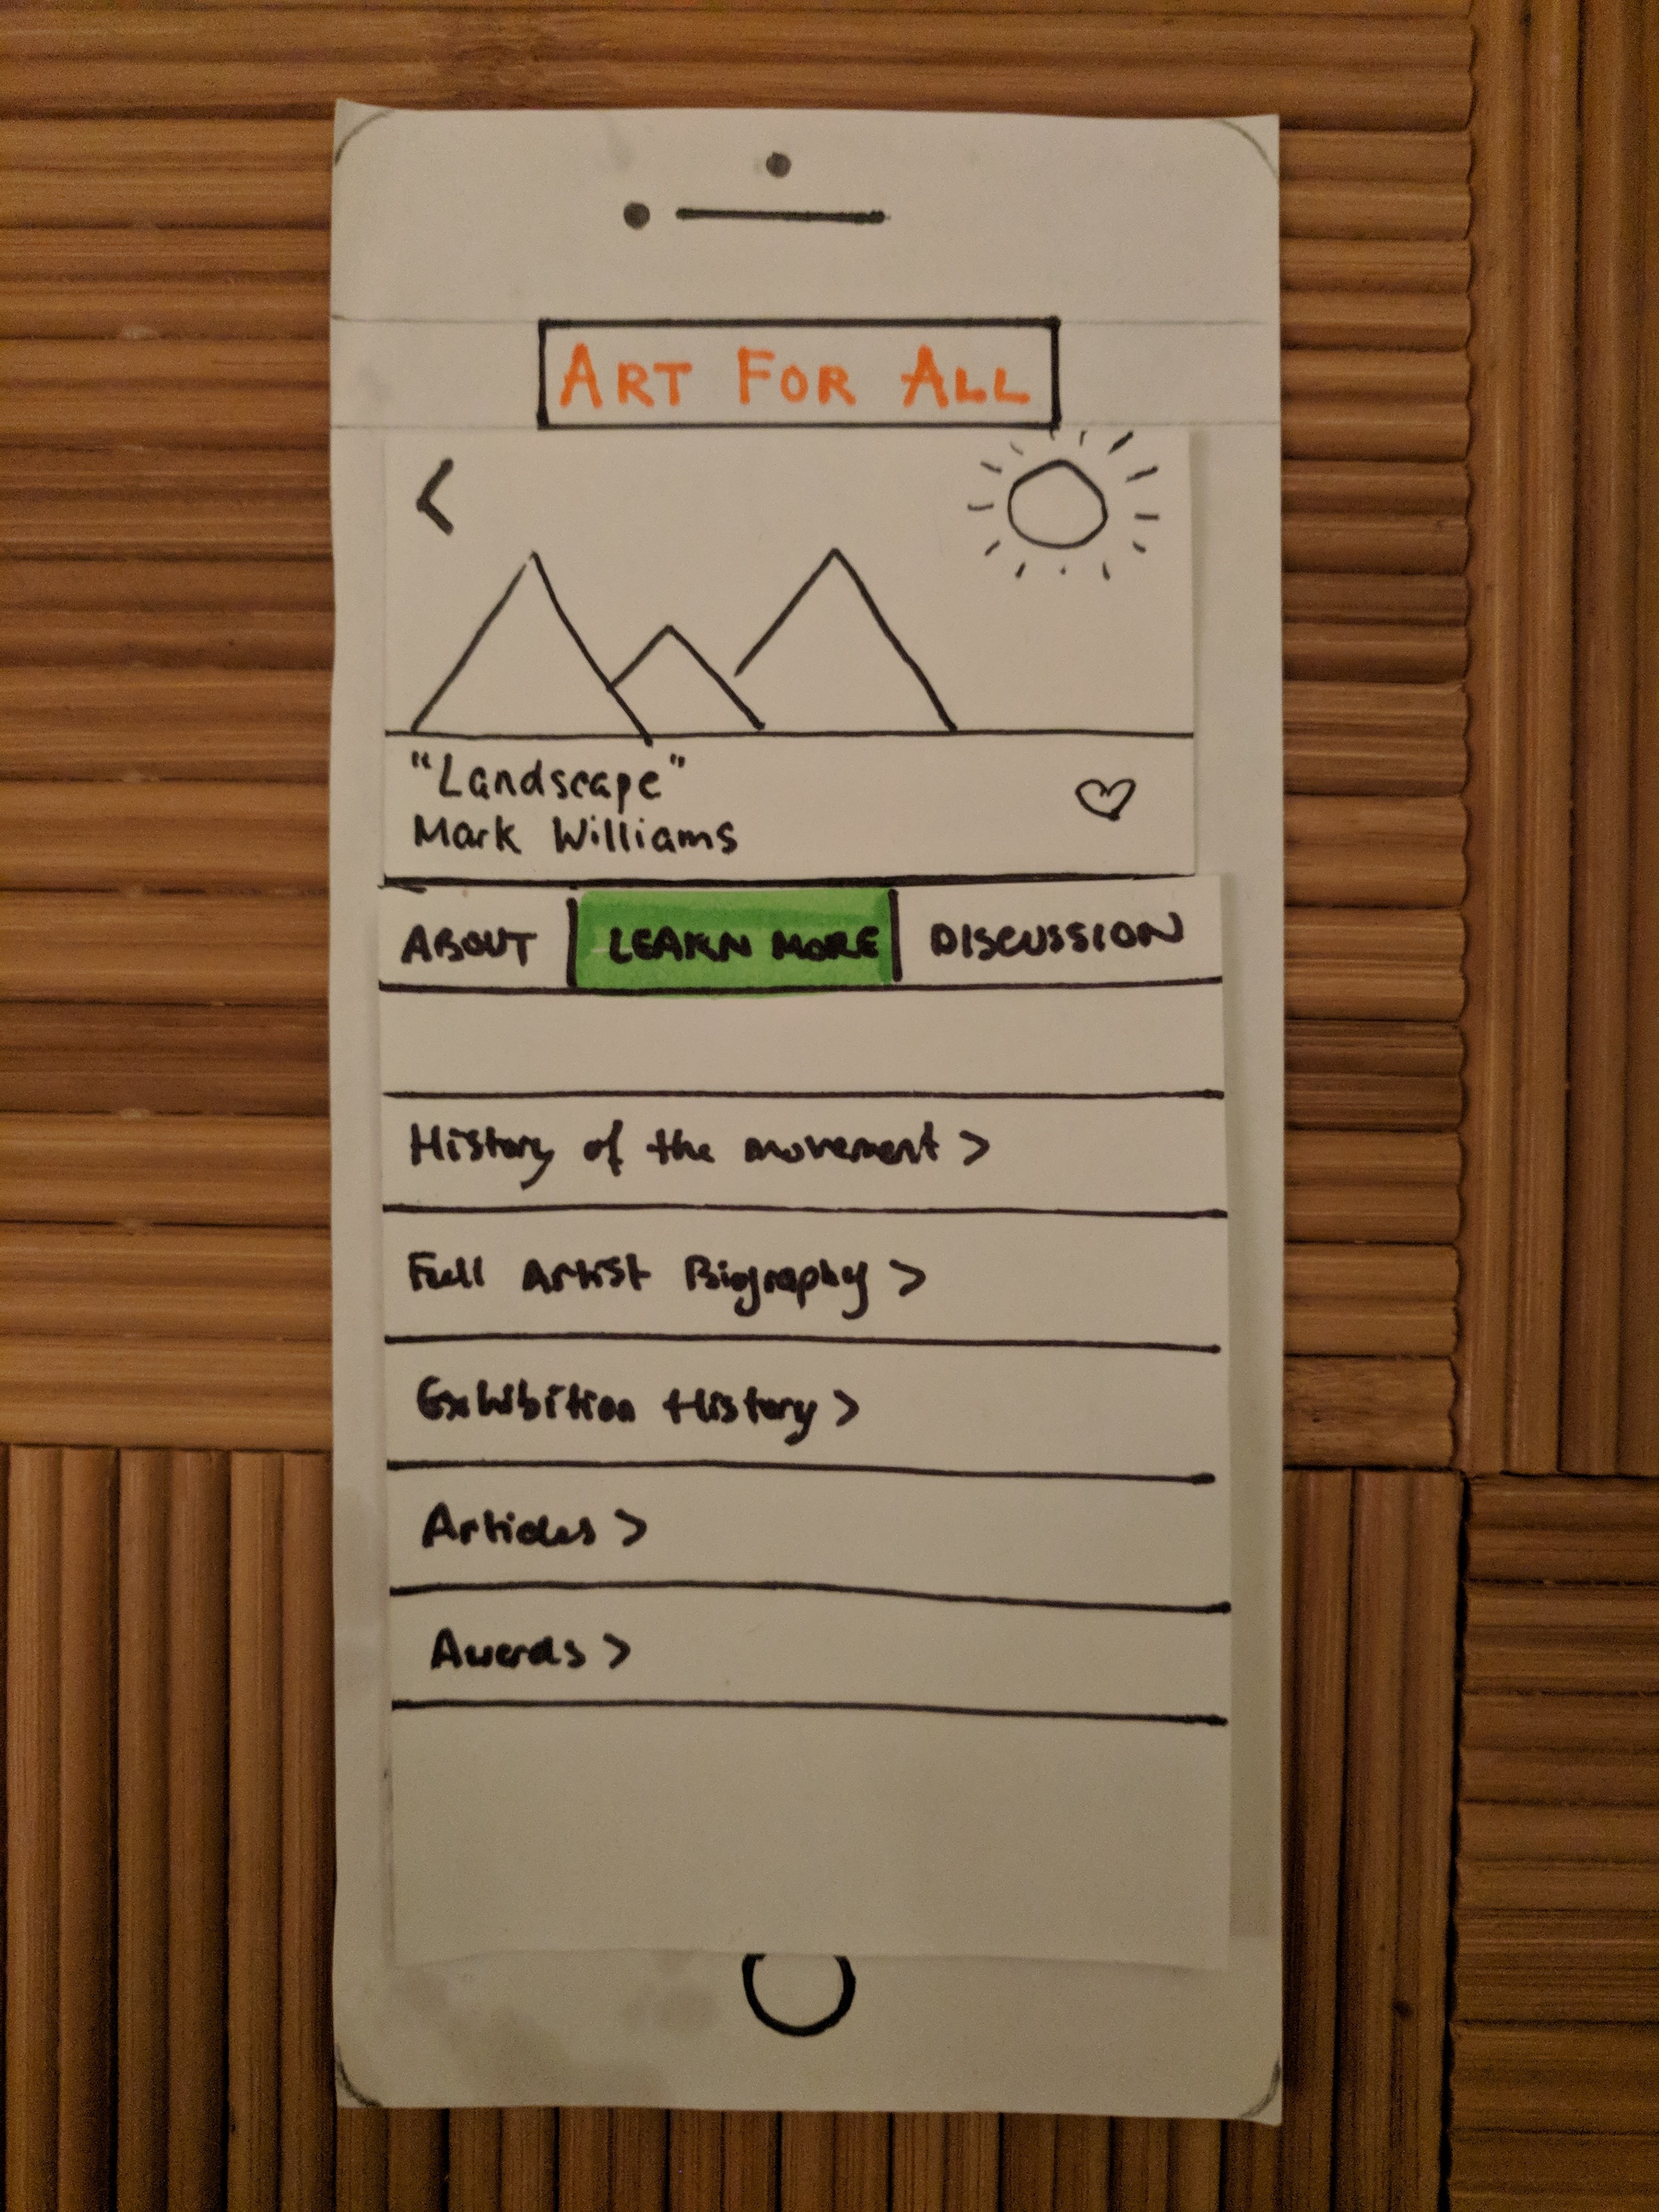 ART FOR ALL
<
"Landscape"
Mark Williams
ABOUT | LEARN MORE | DISCUSSION
History of the movement >
Full Artist Biography >
Exhibition History >
Articles >
Awards >